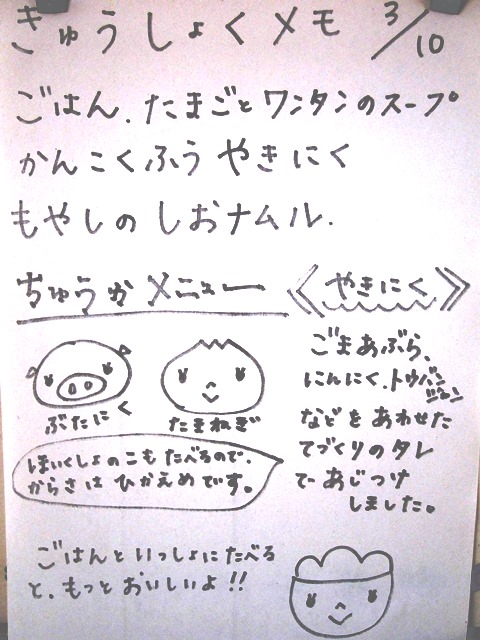 きゅうしょくメモ 3/10
ごはん.たまごとワンタンのスープ
かんこくふう やきにく
もやしの しおナムル.
ちゅうか メニュー
《やきにく》
ごまあぶら、
にんにく.トウバンジャン
などを あわせた
てづくりのタレ
で あじつけ
しました。
ぶたにく
たまねぎ
ほいくしょのこも たべるので.
からさは ひかえめです。
ごはんと いっしょに たべる
と、もっと おいしいよ!!